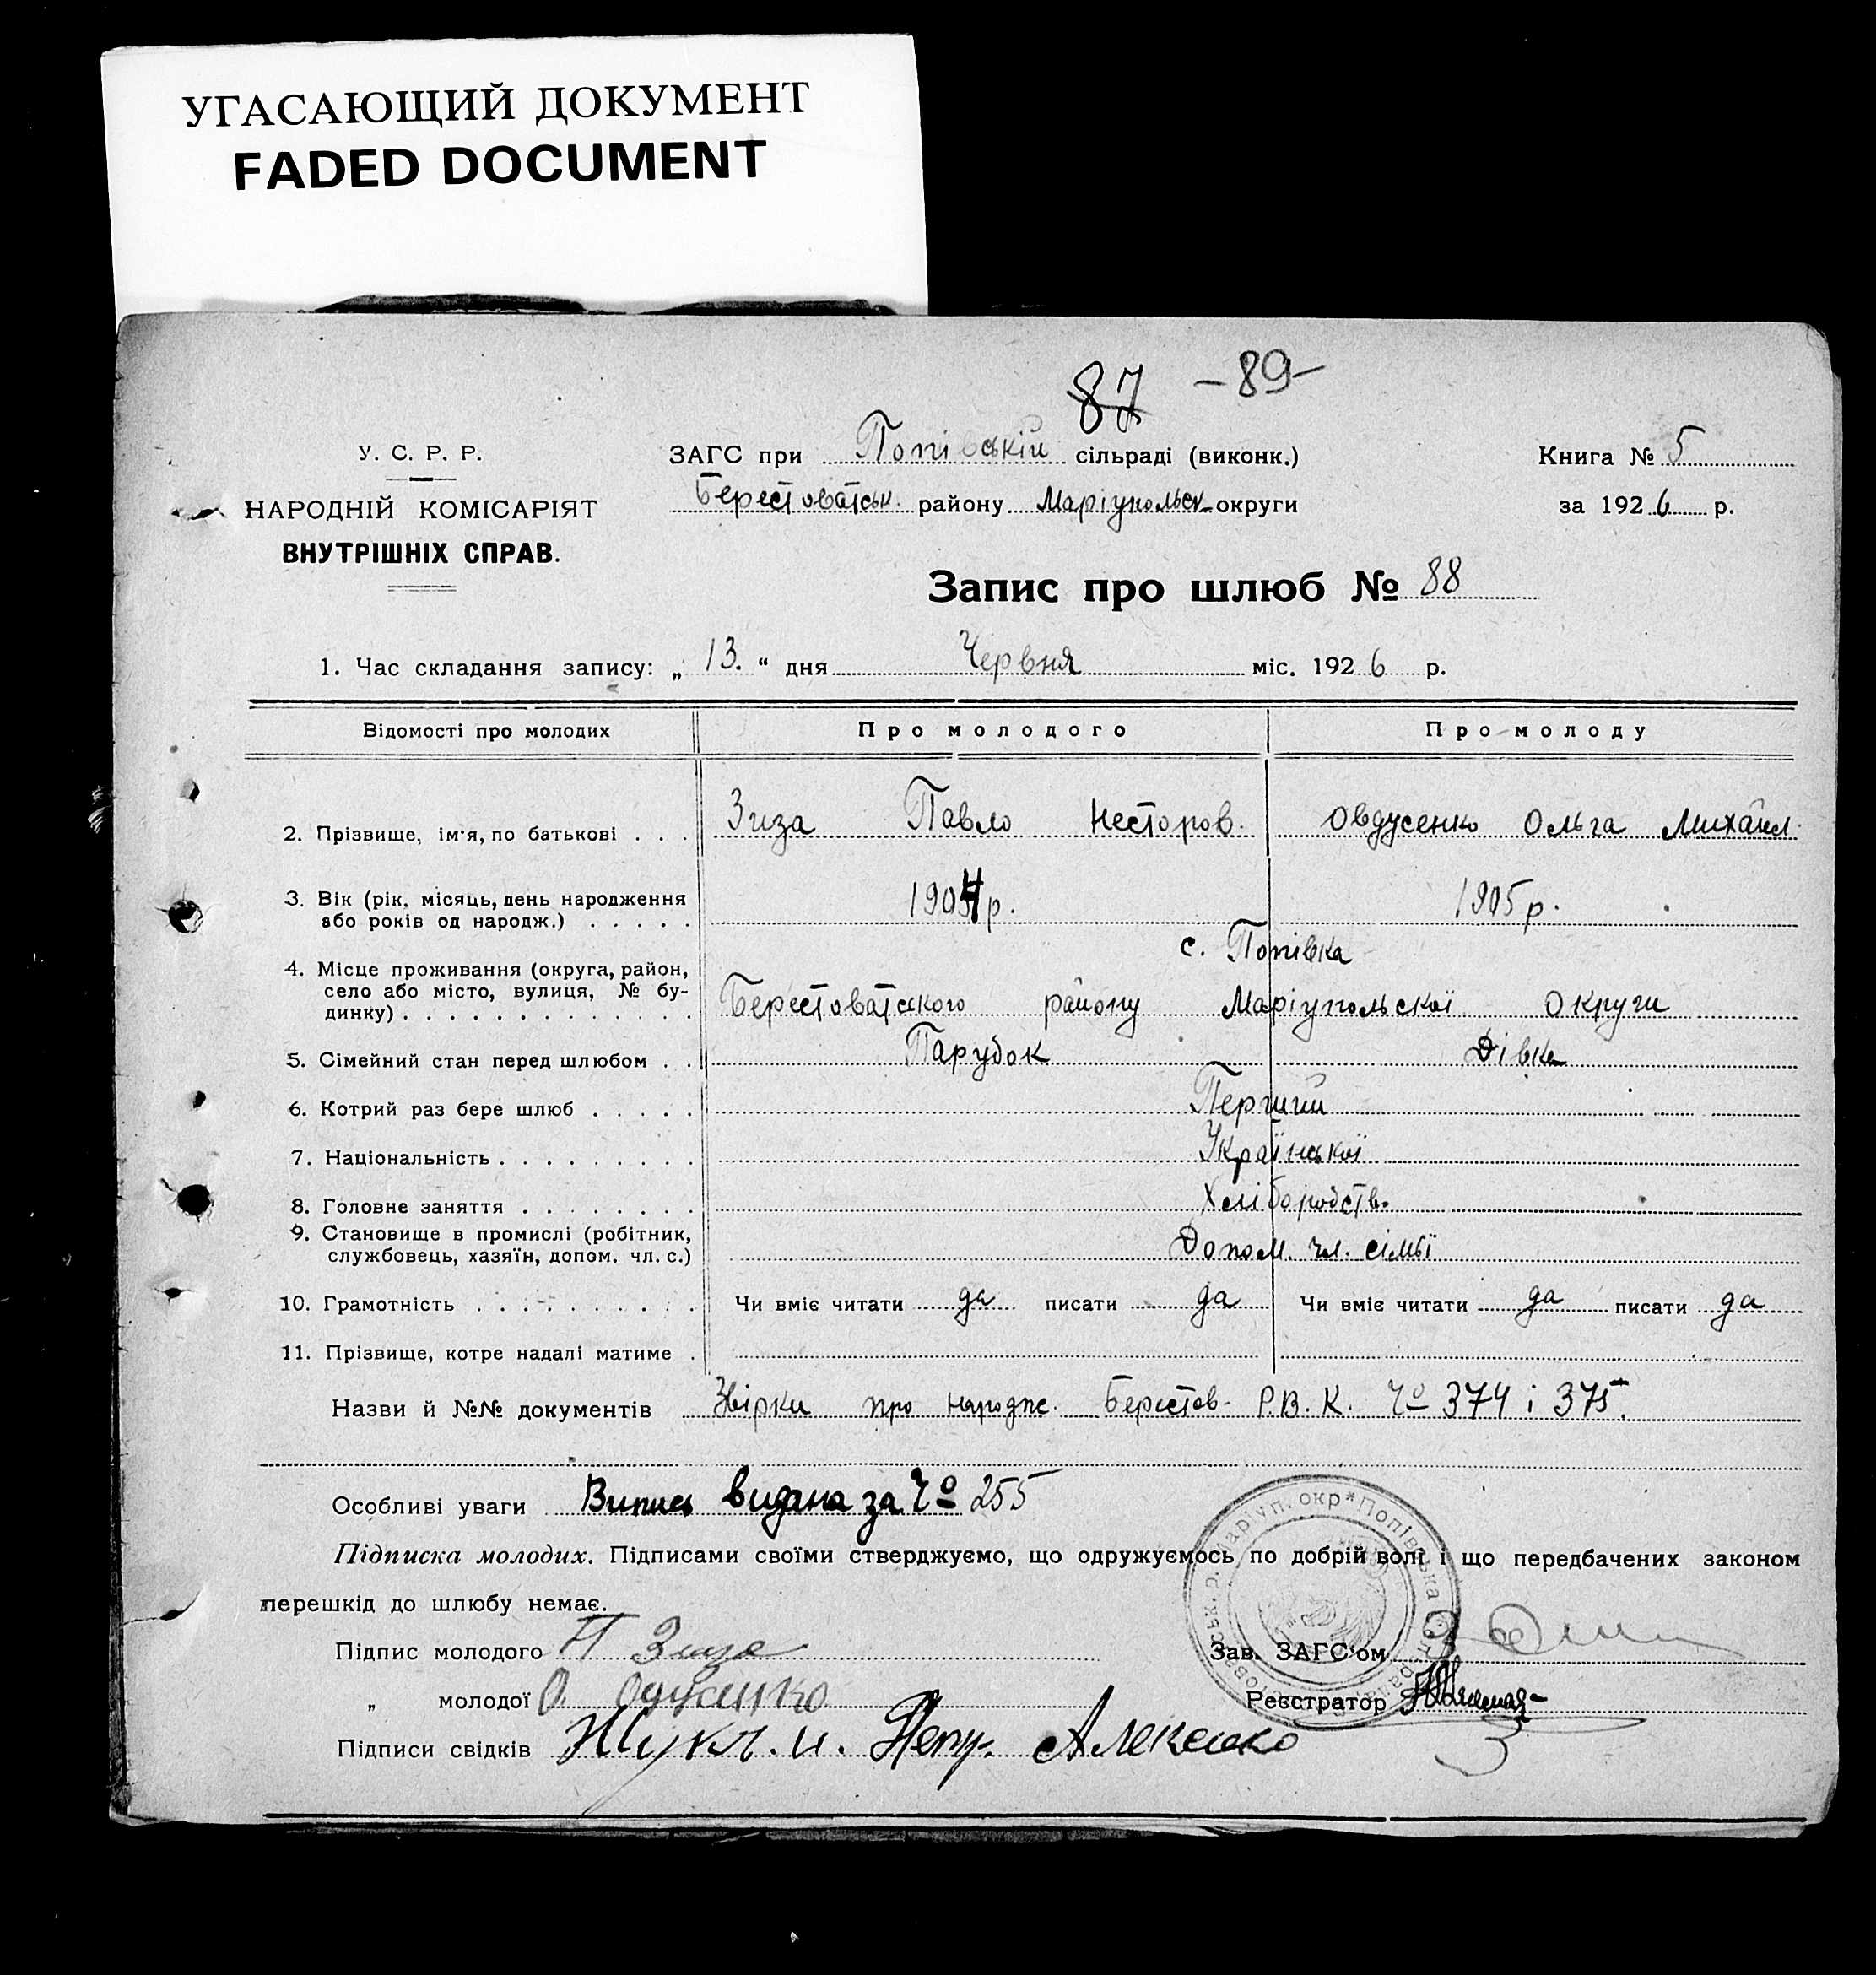 УГАСАЮЩИЙ ДОКУМЕНТ
FADED DOCUMENT
87 -89-
У. С. Р. Р.
НАРОДНІЙ КОМІСАРІЯТ
ВНУТРІШНІХ СПРАВ.
ЗАГС при Попівській сільраді (виконк.)
Берестоватськ. району Маріупольськ округи
Книга № 5
за 1926 р.
Запис про шлюб № 88
1. Час складання запису: „ 13. “ дня Червня міс. 1926 р.
Відомості про молодих Про молодого Про молоду
2. Прізвище, ім'я, по батькові . . . Зиза Павло Несторов. Овдусенко Ольга Михайл.
3. Вік (рік, місяць, день народження
або років од народж.) . . . . . 1904 р. 1905 р.
с. Попівка
4. Місце проживання (округа, район,
село або місто, вулиця, № бу-
динку) . . . . . . . . . . . . . Берестоватського району Маріупольскої Округи
5. Сімейний стан перед шлюбом . . Парубок Дівка
6. Котрий раз бере шлюб . . . . . Перший
7. Національність . . . . . . . . . Української
8. Головне заняття . . . . . . . . Хліборобств.
9. Становище в промислі (робітник,
службовець, хазяїн, допом. чл. с.) Допом. чл. сімьї
10. Грамотність . . . . . . . . . . Чи вміє читати да писати да Чи вміє читати да писати да
11. Прізвище, котре надалі матиме .
Назви й №№ документів Звірки про народж. Берестов. Р.В.К. Чо 374 і 375.
Особливі уваги Випись видана за Чо 255
Підписка молодих. Підписами своїми стверджуємо, що одружуємось по добрій волі і що передбачених законом
перешкід до шлюбу немає.
Підпис молодого П Зиза
Зав. ЗАГС'ом
„ молодої О.
Реєстратор
Підписи свідків
Маріуп. окр * Попівська